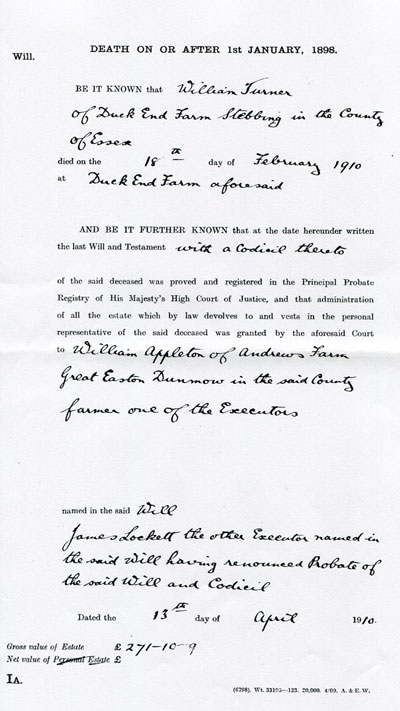 DEATH ON OR AFTER 1st JANUARY, 1898.
Will.
BE IT KNOWN that William Turner
of Duck End Farm Stebbing in the County
of Essex
died on the 18th day of February 1910
at Duck End Farm aforesaid
AND BE IT FURTHER KNOWN that at the date hereunder written
the last Will and Testament with a Codicil thereto
of the said deceased was proved and registered in the Principal Probate
Registry of His Majesty's High Court of Justice, and that administration
of all the estate which by law devolves to and vests in the personal
representative of the said deceased was granted by the aforesaid Court
to William Appleton of Andrews Farm
Great Easton Dunmow in the said County
farmer one of the Executors
named in the said Will
James Lockett the other Executor named in
the said Will having renounced Probate of
the said Will and Codicil
Dated the 13th day of April 1910.
Gross value of Estate £ 271-10-9
Net value of Personal Estate £
IA.
(6798). Wt. 33195—123. 20,000. 4/09. A. & E. W.